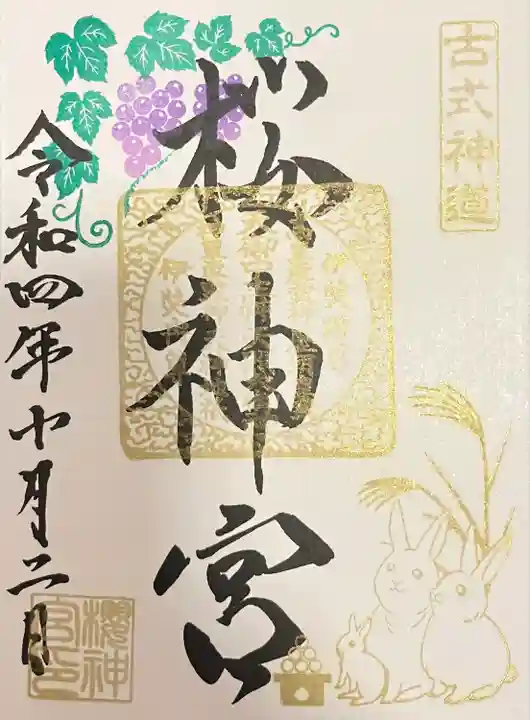 古式神道
桜神宮
令和四年十月二日
櫻神宮印